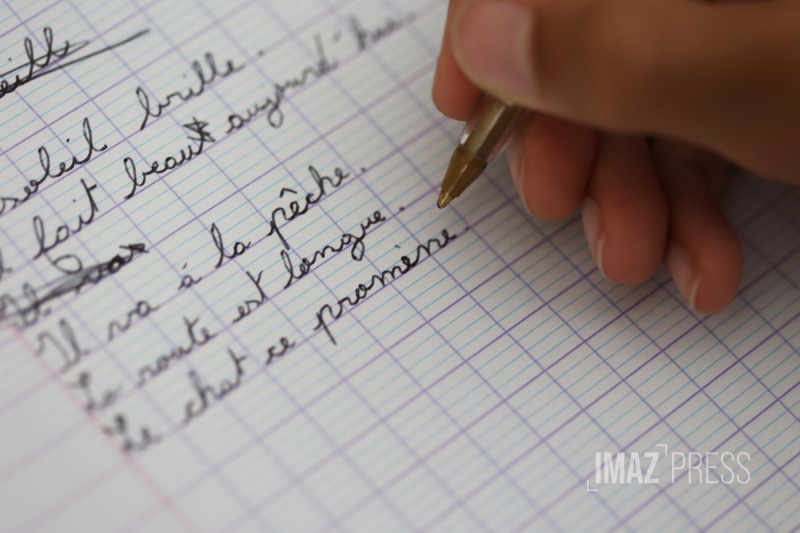 soleil brille.
fait beaut aujourd'hui.
Il va à la pêche.
La route est longue.
Le chat ce promène.
IMAZ PRESS